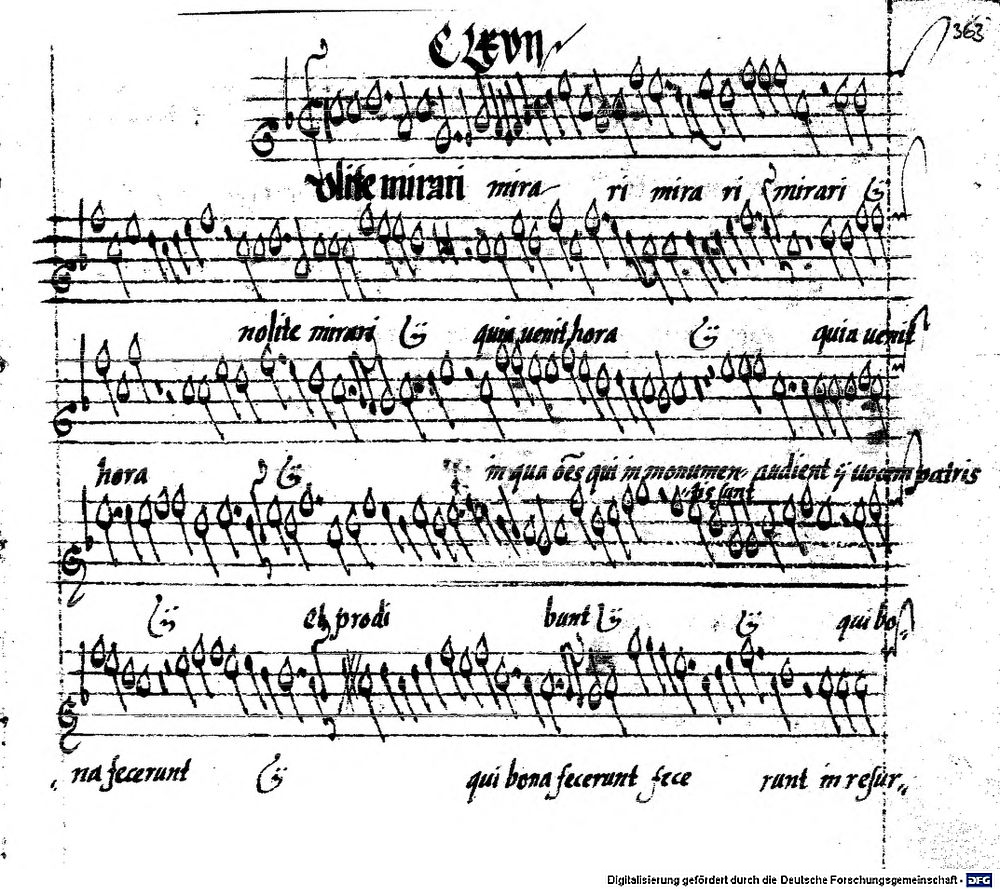 363
CLXVII
Nolite mirari mira ri mira ri mirari ij
nolite mirari ij quia uenit hora ij quia uenit
hora ij in qua oēs qui in monumen audient ij uocem patris
tis sunt
ij et prodi bunt ij ij qui bo
na fecerunt ij qui bona fecerunt fece runt in resur
Digitalisierung gefördert durch die Deutsche Forschungsgemeinschaft - DFG